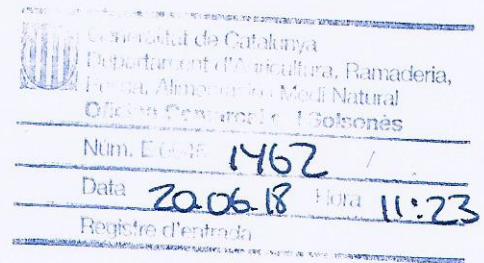 Generalitat de Catalunya
Departament d'Agricultura, Ramaderia,
Pesca, Alimentació i Medi Natural
Oficina Comarcal del Solsonès
Núm. 1462 /
Data 20.06.18 Hora 11:23
Registre d'entrada